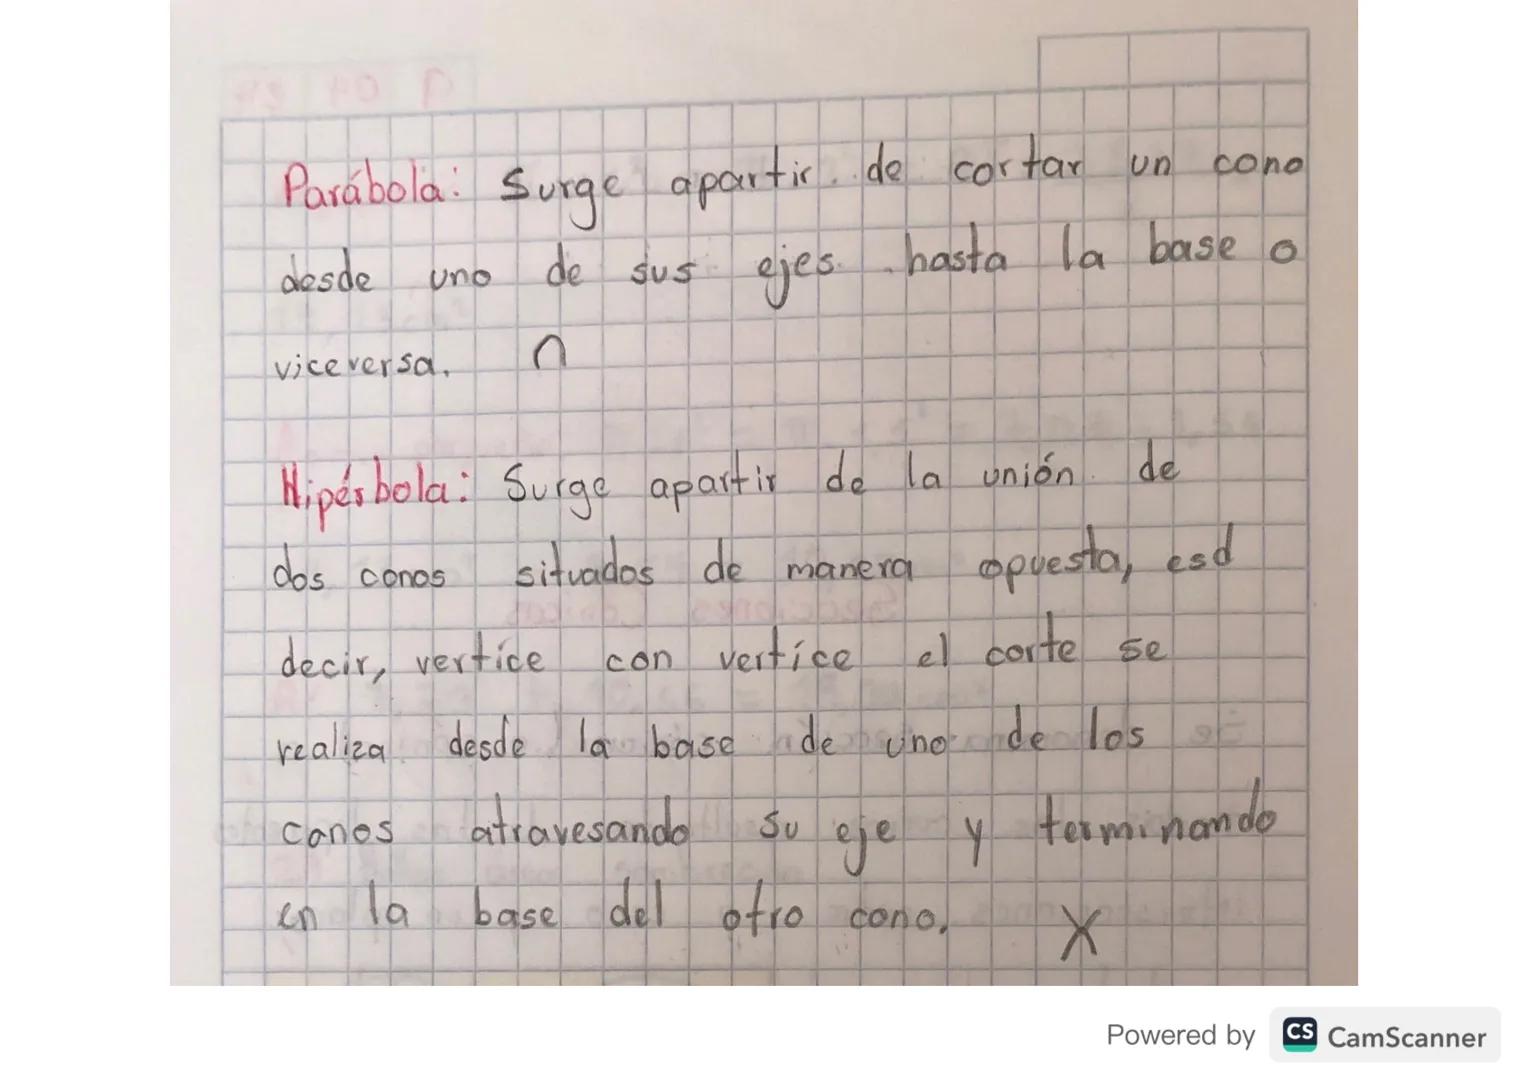 Parábola: Surge apartir de cortar un cono
desde uno de sus ejes hasta la base o
viceversa. ∩
Hipérbola: Surge apartir de la unión de
dos conos situados de manera opuesta, esd
decir, vertice con vertice el corte se
realiza desde la base de uno de los
conos atravesando su eje y terminando
en la base del otro cono. X
Powered by CS CamScanner